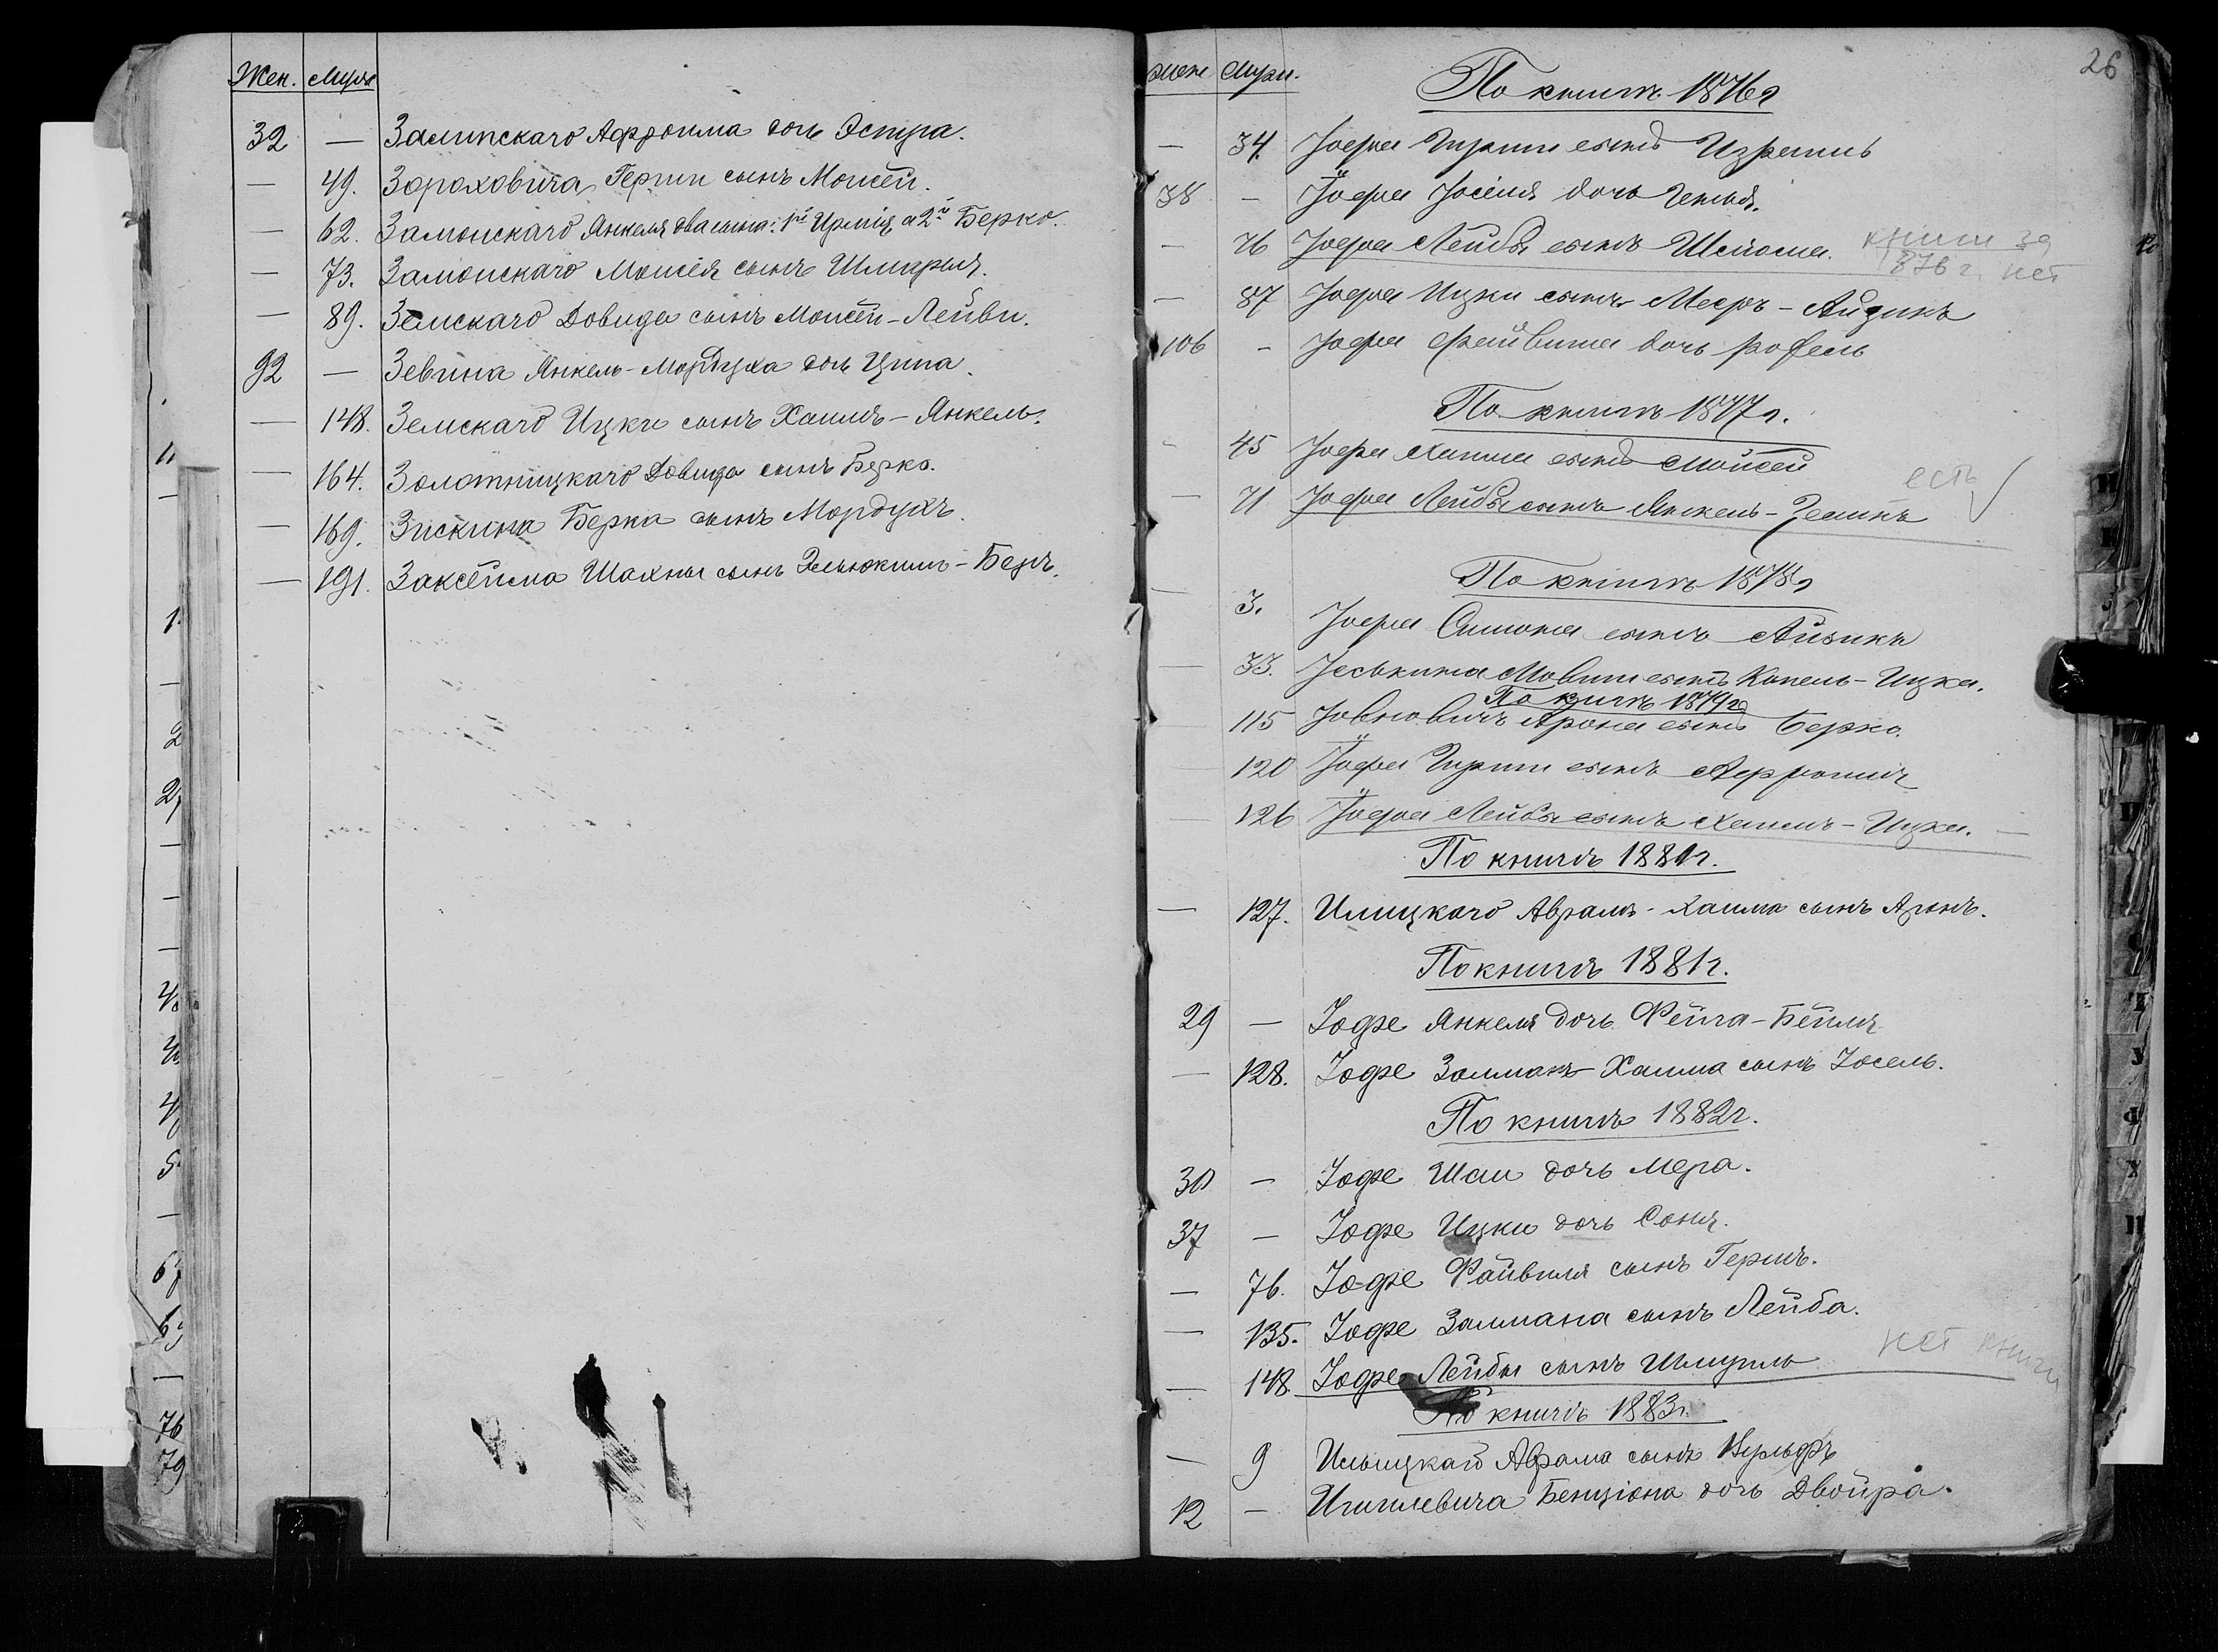 Жен. Муж.
32 — Залипскаго Афроима дочь Эстра.
— 49. Зороховича Герши сынъ Моисей.
— 62. Замонскаго Янкеля два сына: 1й а 2й Берко.
— 73. Замонскаго Моисея сынъ Шмарья.
— 89. Земскаго Довида сынъ Моисей-Лейви.
92 — Зевина Янкель-Мордуха дочь Ципа.
— 148. Земскаго Ицки сынъ Хаимъ-Янкель.
— 164. Золотницкаго Довида сынъ Берко.
— 169. Зискина Берка сынъ Мордухъ.
— 191. Заксейма Шахны сынъ Эльюкимъ-Беръ.
1
2
5
76
79
26
жен Муж.
По книгѣ 1876г
— 34. Іофа Гирши сынъ Израиль
38 — Іофа Іоселя дочь Генья.
— 76 Іофа Лейбы сынъ книги за
1876 г. нет
— 87 Іофа Ицки сынъ Мееръ-Айзикъ
106 — Іофа Файвиша дочь Рофель
По книгѣ 1877г.
— 45 Іофа Хаима сынъ Мойсей
есть
— 71 Іофа Лейбы сынъ Янкель-Зеликъ
По книгѣ 1878г
— 3. Іофа Симона сынъ Айзикъ
— 33. Іеськина Мовши сынъ Копель-Ицка.
По книгѣ 1879г
115 Іовновичъ Арона сынъ Берко.
120 Іофа Гирши сынъ Афроимъ
126 Іофа Лейбы сынъ Хаимъ-Ицка. —
По книгѣ 1880г.
— 127. Илицкаго Абрамъ-Хаима сынъ Аронъ.
По книгѣ 1881г.
29 — Іофе Янкеля дочь Фейга-Бейля
— 128. Іофе Залманъ-Хаима сынъ Іосель.
По книгѣ 1882г.
30 — Іофе Шаи дочь Мера.
37 — Іофе Ицки дочь Соня.
— 76. Іофе Файвиля сынъ Гершъ.
— 135. Іофе Залмана сынъ Лейба.
— 148. Іофе Лейбы сынъ Шмуиль нет книги
По книгѣ 1883г.
— 9 Илицкаго Абрама сынъ Вульфъ
12 — Бенціона дочь Двойра.